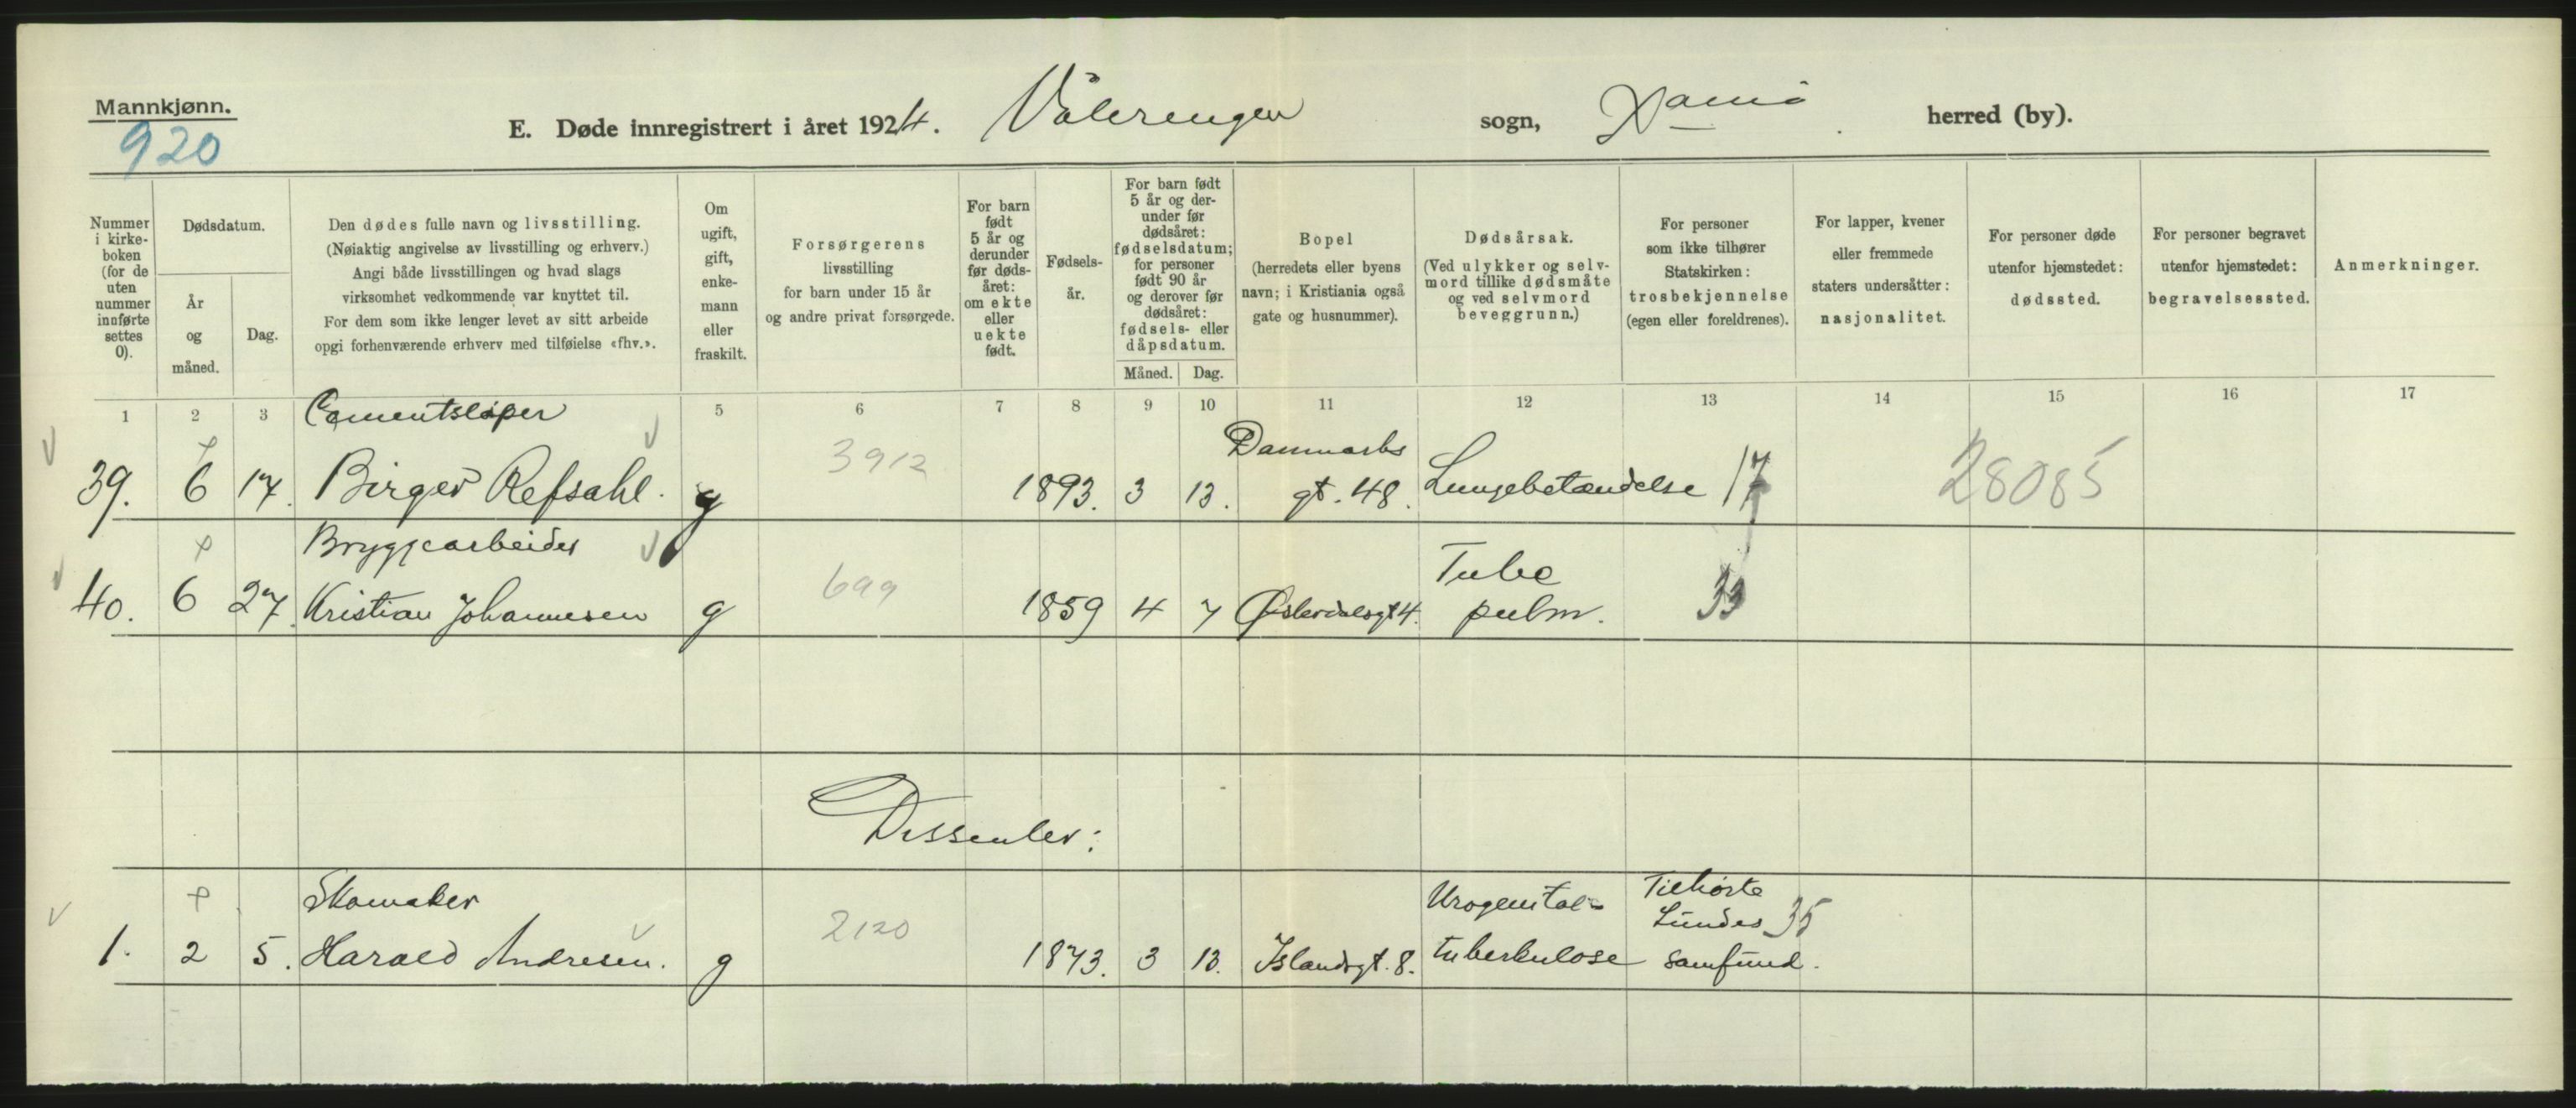 Mannkjønn.
920
E. Døde innregistrert i året 1924. Vålerengen sogn, Xania herred (by).
Nummer i kirke- boken (for de uten nummer innførte settes 0).
Dødsdatum.
År og måned.
Dag.
Den dødes fulle navn og livsstilling.
(Nøiaktig angivelse av livsstilling og erhverv.)
Angi både livsstillingen og hvad slags
virksomhet vedkommende var knyttet til.
For dem som ikke lenger levet av sitt arbeide
opgi forhenværende erhverv med tilføielse «fhv.».
Om ugift, gift, enke- mann eller fraskilt.
Forsørgerens
livsstilling
for barn under 15 år
og andre privat forsørgede.
For barn født 5 år og derunder før døds- året: om ekte eller uekte født.
Fødsels- år.
For barn født 5 år og der- under før dødsåret: fødselsdatum; for personer født 90 år og derover før dødsåret: fødsels- eller dåpsdatum.
Måned.
Dag.
Bopel
(herredets eller byens
navn; i Kristiania også
gate og husnummer).
Dødsårsak.
(Ved ulykker og selv-
mord tillike dødsmåte
og ved selvmord
beveggrunn.)
For personer
som ikke tilhører
Statskirken:
trosbekjennelse
(egen eller foreldrenes).
For lapper, kvener
eller fremmede
staters undersåtter:
nasjonalitet.
For personer døde
utenfor hjemstedet:
dødssted.
For personer begravet
utenfor hjemstedet:
begravelsessted.
Anmerkninger.
1 2 3 5 6 7 8 9 10 11 12 13 14 15 16 17
Cementsliper
Danmarks
39. 6 17. Birger Refsahl. g 3912 1893. 3 13. gt. 48. Lungebetændelse 17 28085
Bryggearbeider
Tube
40. 6 27. Kristian Johannesen g 699 1859 4 7 Østerdalsgt 4. pulm. 33
Dissenter:
Skomaker
Urogenital-
Tilhørte
Lundes 35
1. 2 5. Harald Andresen. g 2120 1873. 3 13. Islandsgt. 8. tuberkulose samfund.